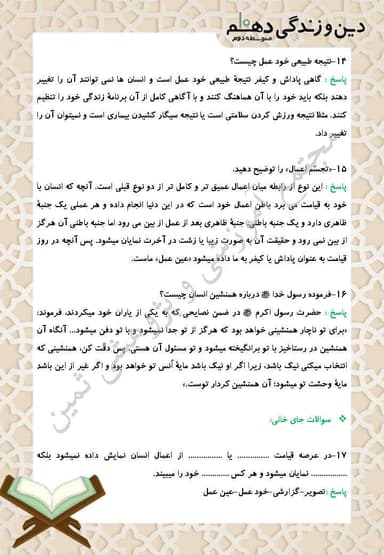 دین و زندگی دهم
متوسطه دوم
۱۴-نتیجه طبیعی خود عمل چیست؟
پاسخ : گاهی پاداش و کیفر نتیجهٔ طبیعی خود عمل است و انسان ها نمی توانند آن را تغییر
دهند بلکه باید خود را با آن هماهنگ کنند و با آگاهی کامل از آن برنامهٔ زندگی خود را تنظیم
کنند. مثلا نتیجه ورزش کردن سلامتی است یا نتیجه سیگار کشیدن بیماری است و نمیتوان آن را
تغییر داد.
۱۵-«تجسم اعمال» را توضیح دهید.
پاسخ : این نوع از رابطه میان اعمال عمیق تر و کامل تر از دو نوع قبلی است. آنچه که انسان با
خود به قیامت می برد باطن اعمال خود است که در این دنیا انجام داده و هر عملی یک جنبهٔ
ظاهری دارد و یک جنبه باطنی جنبهٔ ظاهری بعد از عمل از بین می رود اما جنبه باطنی آن هرگز
از بین نمی رود و حقیقت آن به صورت زیبا یا زشت در آخرت نمایان میشود. پس آنچه در روز
قیامت به عنوان پاداش یا کیفر به ما داده میشود «عین عمل» ماست.
۱۶-فرموده رسول خدا ﷺ درباره همنشین انسان چیست؟
پاسخ : حضرت رسول اکرم ﷺ در ضمن نصایحی که به یکی از یاران خود میکردند، فرموند:
«برای تو ناچار همنشینی خواهد بود که هرگز از تو جدا نمیشود و با تو دفن میشود... آنگاه آن
همنشین در رستاخیز با تو برانگیخته میشود و تو مسئول آن هستی. پس دقت کن، همنشینی که
انتخاب میکنی نیک باشد، زیرا اگر او نیک باشد مایهٔ اُنس تو خواهد بود و اگر غیر از این باشد
مایهٔ وحشت تو میشود؛ آن همنشین کردار توست.»
سوالات جای خالی:
۱۷-در عرصه قیامت ............... یا ............... از اعمال انسان نمایش داده نمیشود بلکه
................ نمایان میشود و هر کس ............. خود را میبیند.
پاسخ: تصویر-گزارشی-خود عمل-عین عمل